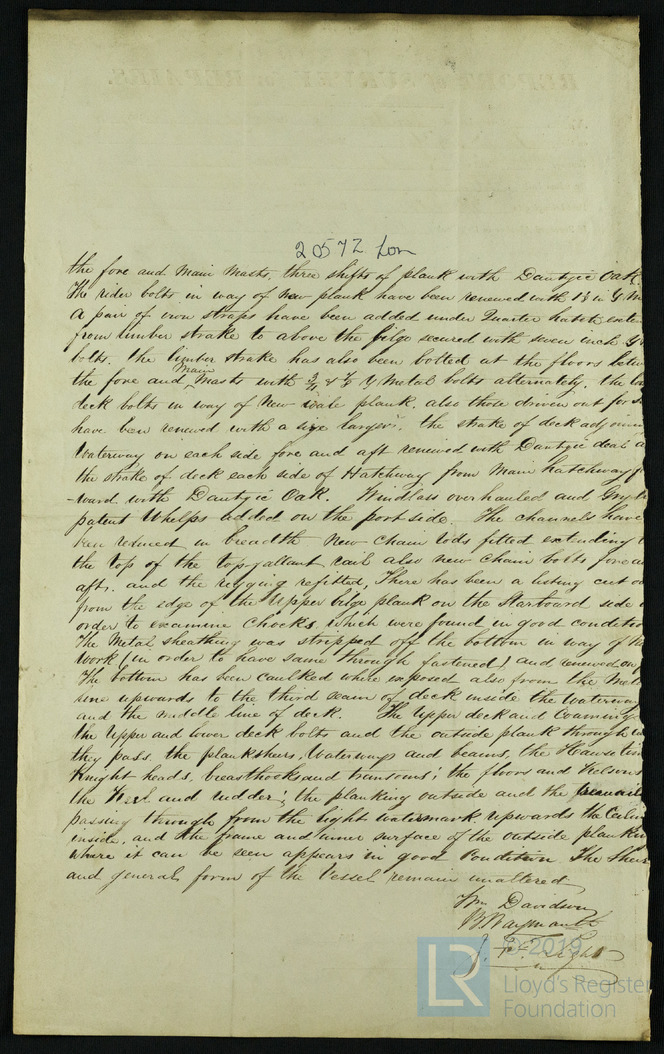 20572 Lon
the fore and Main Masts, three shifts of plank with Dantzic Oak.
The rider bolts in way of New plank have been renewed with 1⅛ in Y.M
A pair of iron straps have been added under Quarter hatch, exten
from limber strake to above the bilge secured with seven inch Y
bolts. the limber strake has also been bolted at the floors betw
the fore and Main Masts with ¾ & ⅞ Y Metal bolts alternately. the lo
deck bolts in way of New wale plank. also those driven out for
have been renewed with a size larger. the strake of deck adjoining
Waterway on each side fore and aft renewed with Dantzic deal a
the strake of deck each side of Hatchway from Main hatchway f
-ward with Dantzic Oak. Windlass overhauled and
patent Whelps added on the port side. The channels have
been reduced in breadth New Chain rods fitted extending t
the top of the topgallant rail also new Chain bolts fore a
aft. and the rigging refitted, There has been a listing cut o
from the edge of the Upper bilge plank on the Starboard side
order to examine Chocks, which were found in good condition
The Metal sheathing was stripped off the bottom in way of N
work (in order to have same through fastened) and renewed on
The bottom has been caulked where exposed also from the Met
line upwards to the third seam of deck inside the Waterway
and the middle line of deck. The Upper deck and Coaming
the Upper and lower deck bolts and the outside plank through w
they pass, the planksheers, Waterways and beams, the Hawse tim
Knight heads, breasthooks and transoms; the floors and Keelsons
the Keel and rudder; the planking outside and the treenails
passing through from the light Watermark upwards the Ceilin
inside, and the frame and inner surface of the outside plankin
where it can be seen appears in good Condition The Sheer
and general form of the Vessel remain unaltered
Wm Davidson
B Waymouth
J. F. Light
© 2019
LR
Lloyd's Register
Foundation